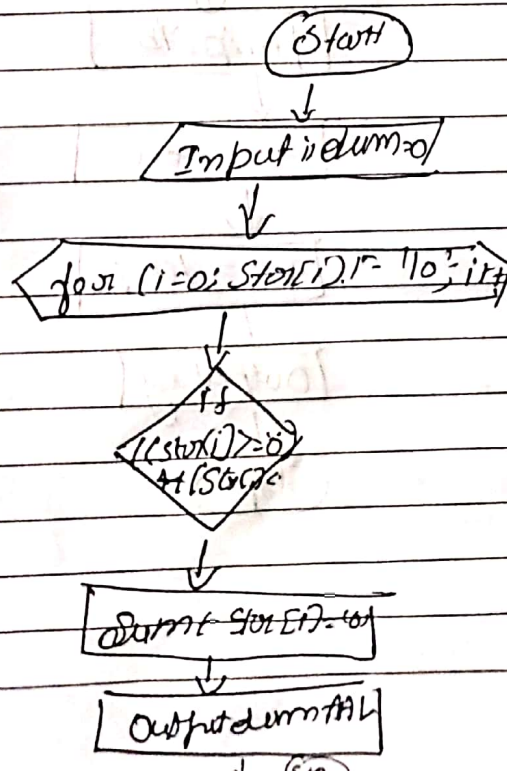 Start
Input i, sum=0
for (i=0; Str[i] != '\0'; i++
If
((str[i]>='0')
&& (Str[i]<
Sum+ Str[i]-'0'
Output sum